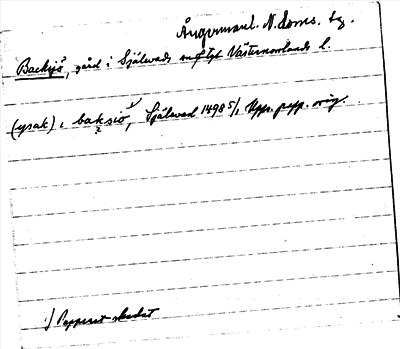 Ångermanl. N. Doms. tg.
Backsjö, gård i Själevads sn, Västernorrlands l.
(ysak) i baksiö 1), Själevad 1498 5/1 Upps. papp. orig.
1) Papperet skadat